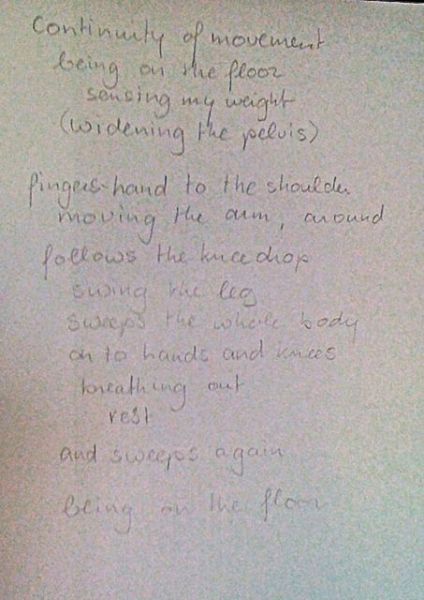 Continuity of movement
being on the floor
sensing my weight
(widening the pelvis)
fingers-hand to the shoulder
moving the arm, around
follows the knee drop
swing the leg
sweeps the whole body
on to hands and knees
breathing out
rest
and sweeps again
being on the floor